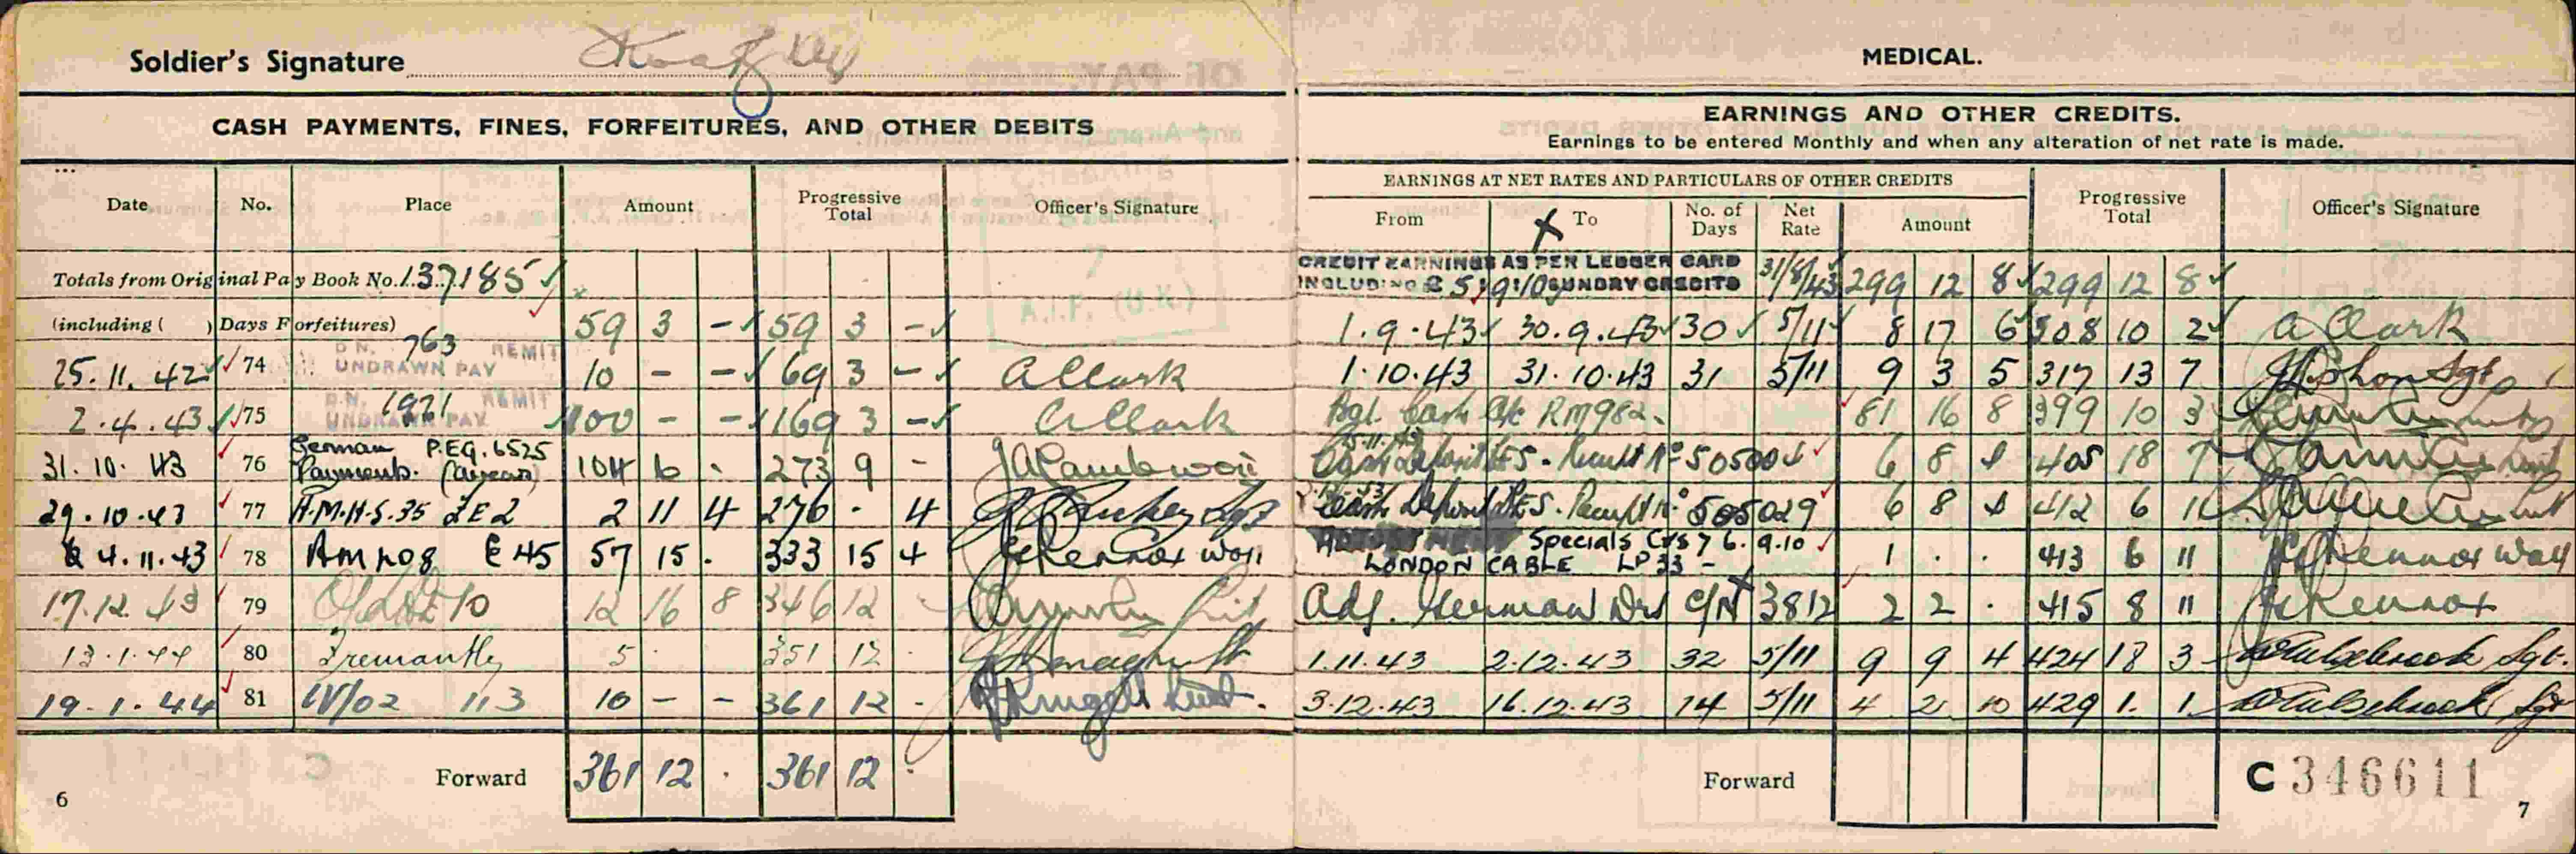 Soldier's Signature
CASH PAYMENTS, FINES, FORFEITURES, AND OTHER DEBITS
Date No. Place Amount Progressive Total Officer's Signature
Totals from Original Pay Book No. 137185
(including ( ) Days Forfeitures) 59 3 - 59 3 -
25.11.42 74 D.N. 763 REMIT UNDRAWN PAY 10 - - 69 3 - A Clark
2.4.43 75 D.N. 1971 REMIT UNDRAWN PAY 100 - - 169 3 - A Clark
31.10.43 76 German P.EQ. 6525 Payments. 104 6 . 273 9 -
29.10.43 77 A.M.H.S.35 2 11 4 276 - 4
4.11.43 78 £45 57 15 . 333 15 4
17.12.43 79 12 16 8 346 12 -
13.1.44 80 Fremantle 5 . 351 12 .
19.1.44 81 113 10 - - 361 12 .
Forward 361 12 . 361 12 .
6
MEDICAL.
EARNINGS AND OTHER CREDITS.
Earnings to be entered Monthly and when any alteration of net rate is made.
EARNINGS AT NET RATES AND PARTICULARS OF OTHER CREDITS Progressive Total Officer's Signature
From X To No. of Days Net Rate Amount
CREDIT EARNINGS AS PER LEDGER CARD 31/8/43 299 12 8 299 12 8
INCLUDING £5:9:10 SUNDRY CREDITS
1.9.43 30.9.43 30 5/11 8 17 6 308 10 2 A Clark
1.10.43 31.10.43 31 5/11 9 3 5 317 13 7 Sgt
Cash RM982. 81 16 8 399 10 3
Cash Deposit Receipt No 505004 6 8 4 405 18 7
Cash Deposit Receipt No 505029 6 8 4 412 6 11
Specials 76.9.10 1 . . 413 6 11
LONDON CABLE LP33 -
Adj. German C/N 3812 2 2 . 415 8 11
1.11.43 2.12.43 32 5/11 9 9 4 424 18 3 Sgt.
3.12.43 16.12.43 14 5/11 4 2 10 429 1. 1 Sgt
Forward
C 346611
7